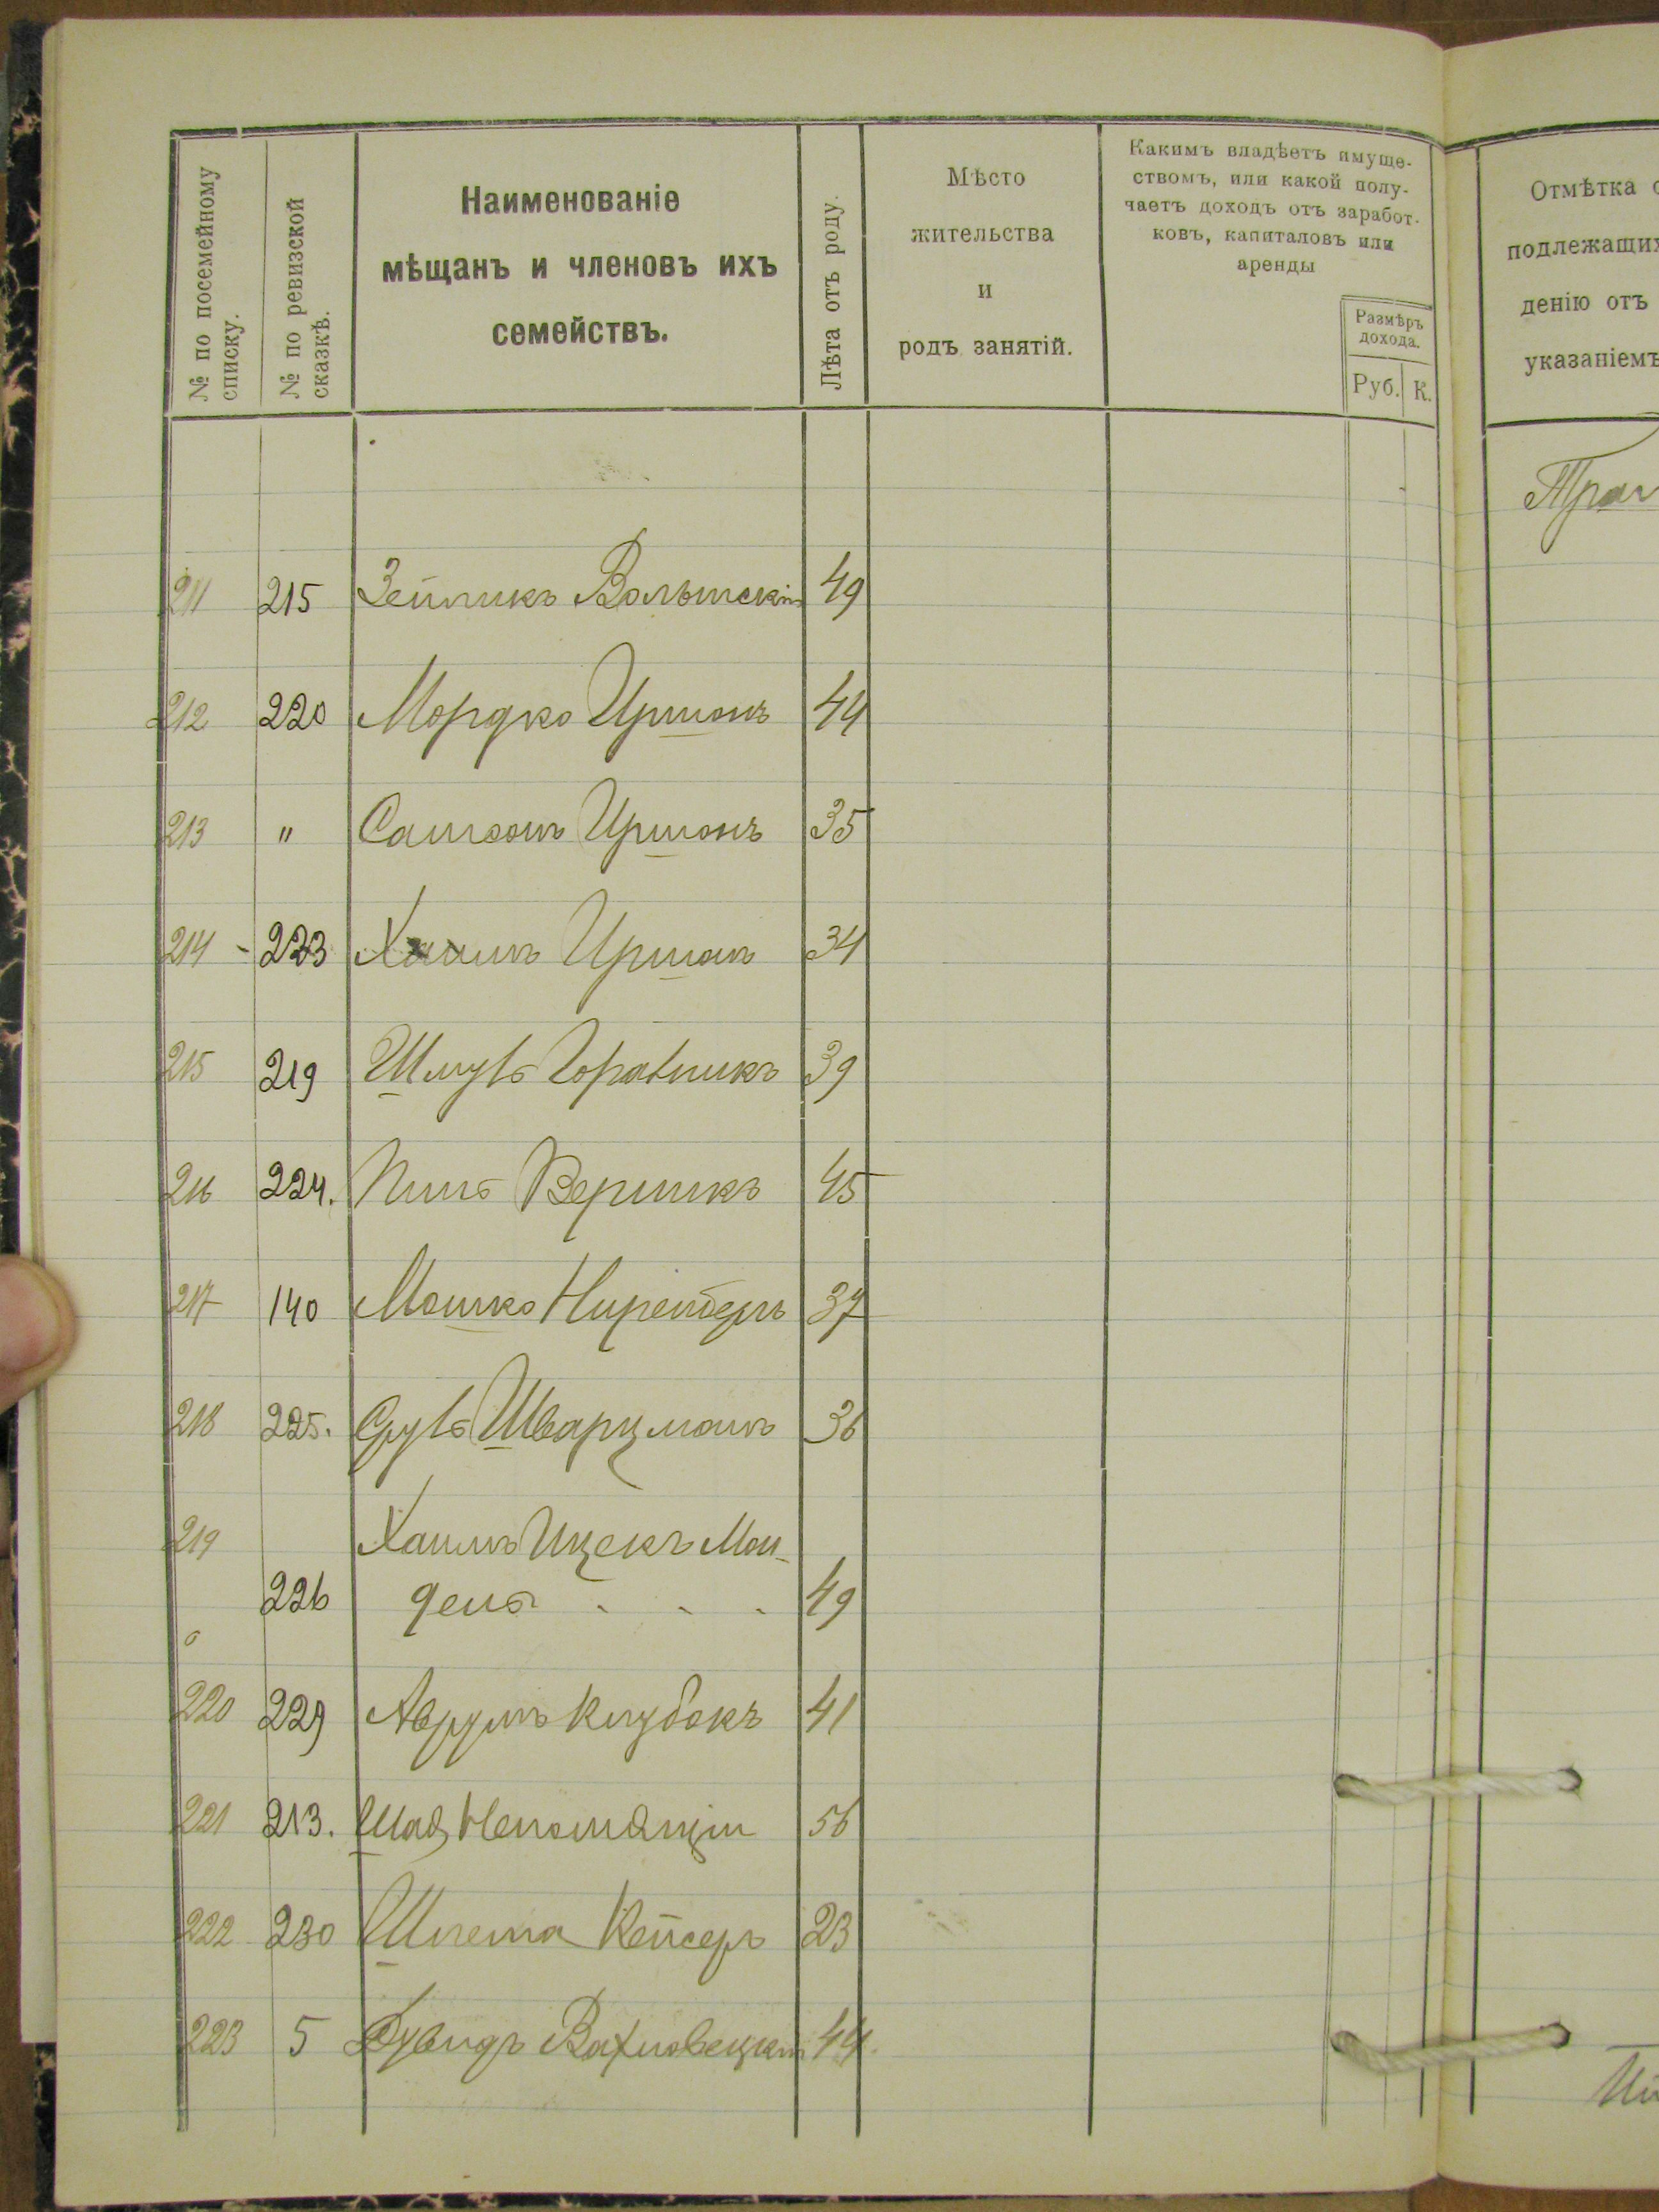 № по посемейному
списку.
№ по ревизской
сказкѣ.
Наименованіе
мѣщанъ и членовъ ихъ
семействъ.
Лѣта отъ роду.
Мѣсто
жительства
и
родъ занятій.
Какимъ владѣетъ имуще-
ствомъ, или какой полу-
чаетъ доходъ отъ заработ-
ковъ, капиталовъ или
аренды
Размѣръ
дохода.
Руб. К.
Отмѣтка
подлежащих
денію отъ
указаніемъ
211 215 Зейликъ Волынскій 49
212 220 Мордко Иршонъ 44
213 " Самсонъ Иршонъ 35
214 - 223 Хаимъ Иршонъ 34
215 219 Шмуль 39
216 224. Пиня Верникъ 45
217 140 Мошко 37
218 225. Сруль Шварцманъ 36
219 Хаимъ Ицекъ Мон-
226 дель - - - 49
220 229 Аврумъ Клубокъ 41
221 213. Шая Непомящій 56
222 230 Шлема Кейсеръ 23
223 5 Дувидъ Вахновецкій 44.